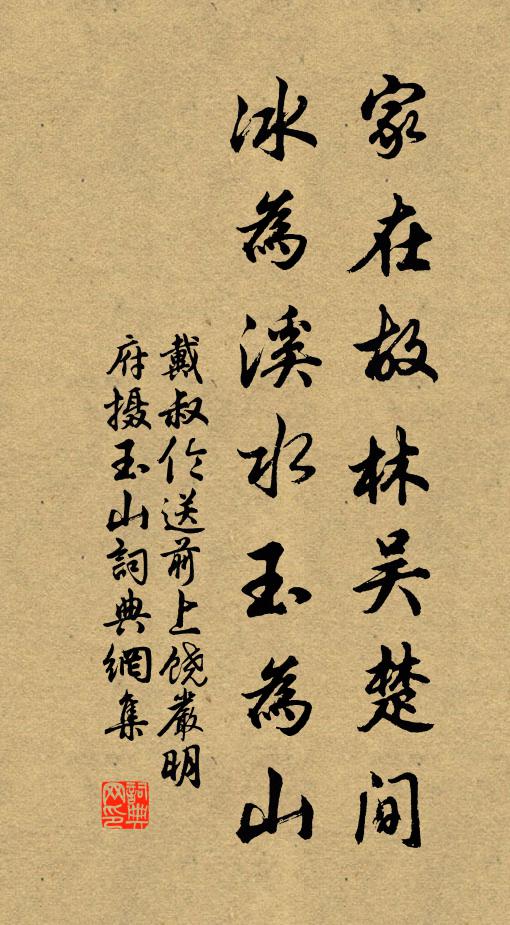 家在故林吴楚间
冰為溪水玉為山
戴叔伦送前上饶嚴明
府摄玉山詞典網集
詞典
网印